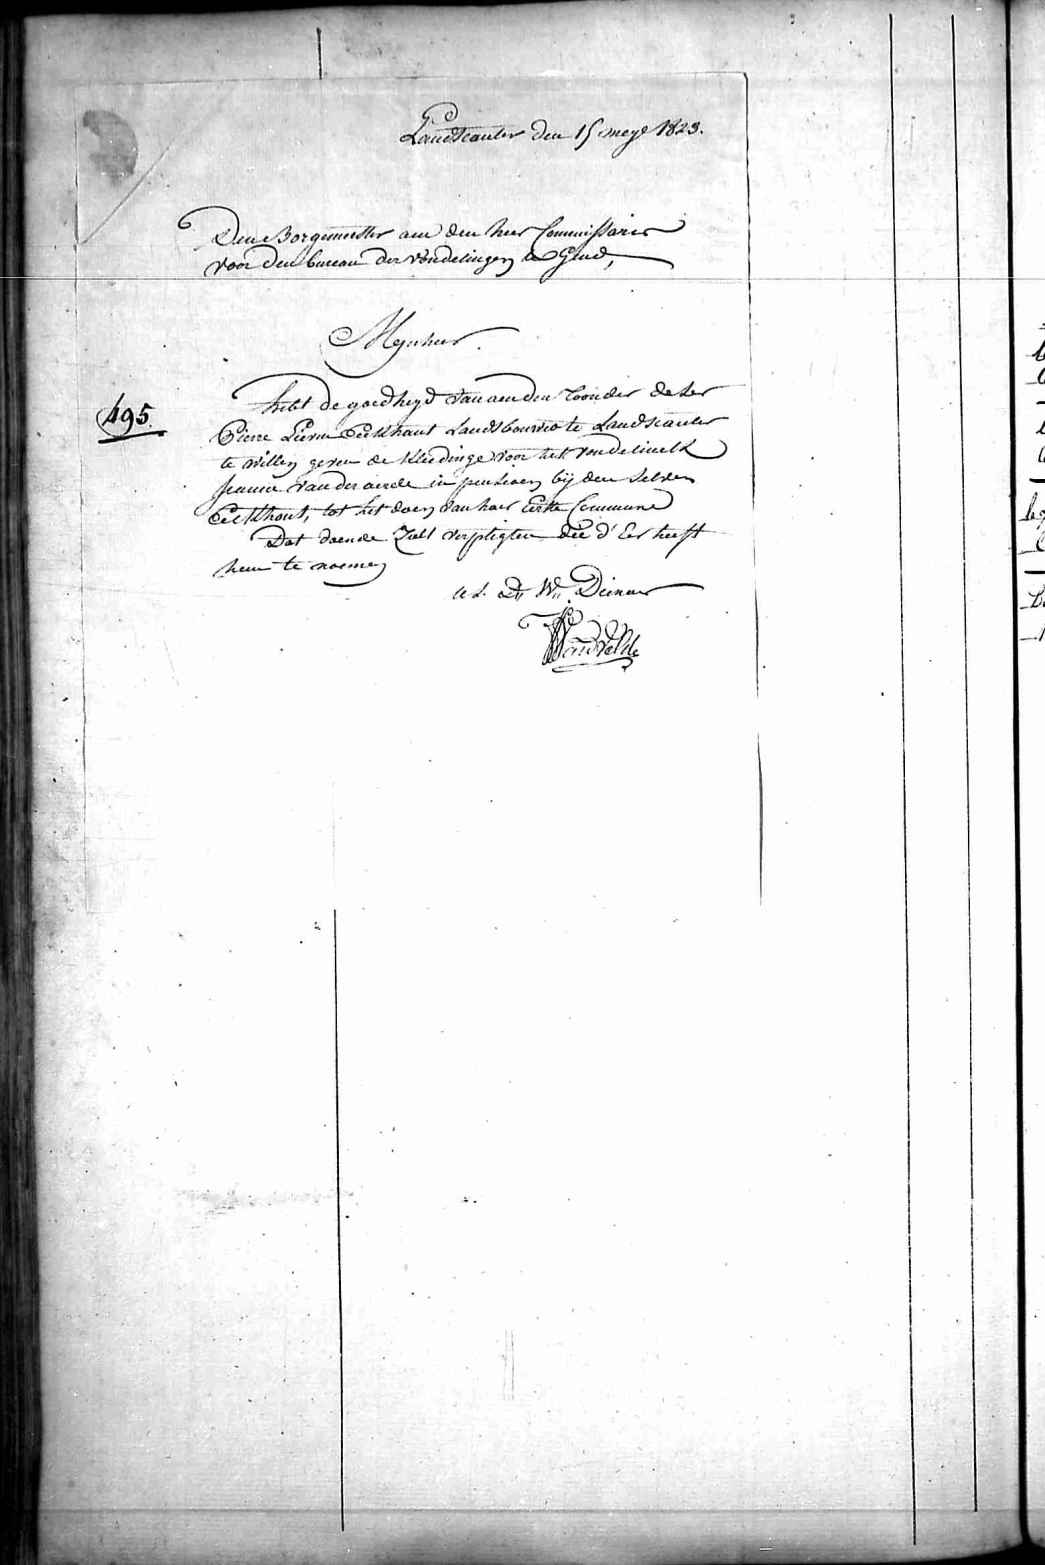 Landscauter den 15 meye 1823.
Den Borgemeester aen den heer Commissaris
voor den bureau der vondelingen te Gend,
Mynheer.
495.
hebt de goedheyd van aen den Toonder dezer
Pierre Lievin Eeckhaut Landsbouwer te Landscauter
te willen geven de kledinge voor het vondelinck
Jeanne van der aerde in pensioen bij den selven
Eeckhout, tot het doen van haer Eerste Commune
Dat doende zult verpligten die d'Eer heeft
hem te noemen
u E. Dienaer